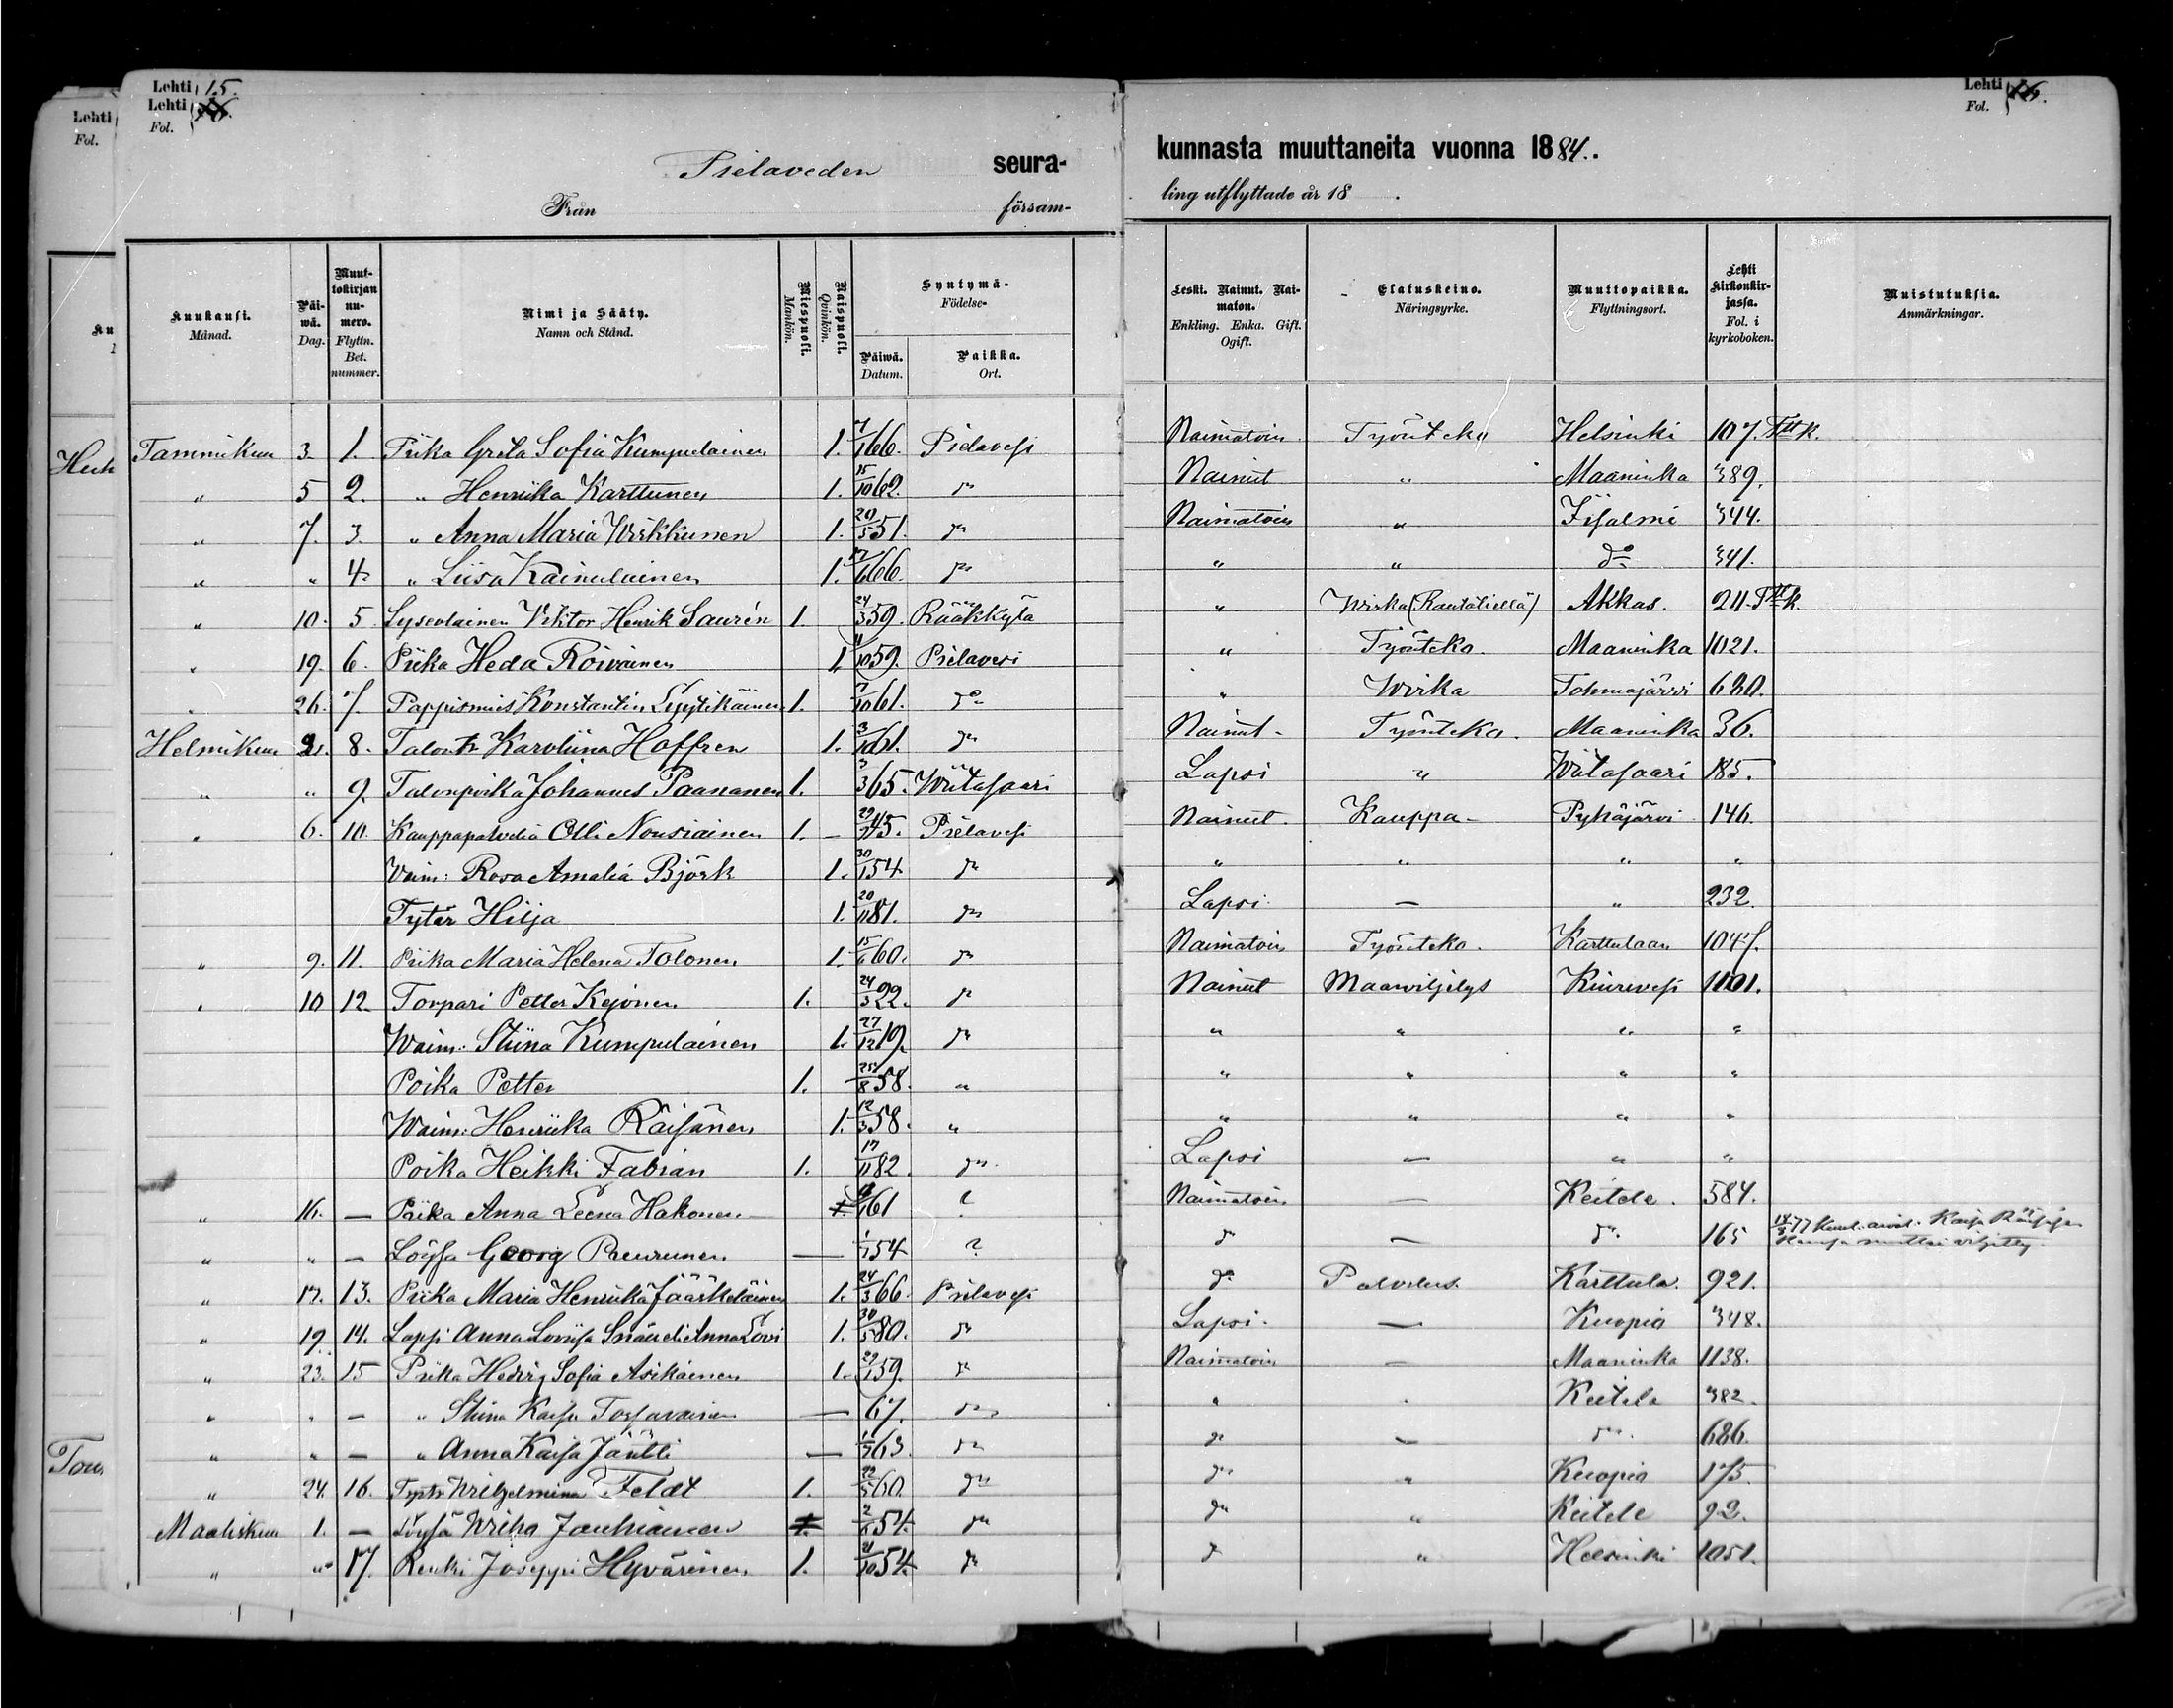 Lehti 15.
Lehti 16.
Fol.
Lehti
Fol.
Lehti 16.
Fol.
Pielaveden seura- kunnasta muuttaneita vuonna 1884.
Från försam- ling utflyttade år 18 .
Kuukausi. Månad.
Päi-wä. Dag.
Muut-tokirjan nu-mero. Flyttn. Bet. nummer.
Nimi ja Sääty. Namn och Stånd.
Miespuoli. Mankön.
Naispuoli. Qvinkön.
Syntymä- Födelse-
Päiwä. Datum.
Paikka. Ort.
Leski. Nainut. Nai-maton. Enkling. Enka. Gift. Ogift.
Elatuskeino. Näringsyrke.
Muuttopaikka. Flyttningsort.
Lehti kirkonkir-jassa. Fol. i kyrkoboken.
Muistutuksia. Anmärkningar.
Tammikuu 3. 1. Piika Greta Sofia Kumpulainen 1. 7/1 66. Pielavesi Naimatoin Työnteko Helsinki 107.
" 5 2. " Henriika Karttunen 1. 15/10 62. do Nainut " Maaninka 389.
" 7. 3. " Anna Maria Wirkkunen 1. 20/5 51. do Naimatoin " Iisalmi 344.
" " 4. " Liisa Kainulainen 1. 17/6 66. do " " do 341.
" 10. 5. Lyseolainen Viktor Henrik Saurén 1. 24/3 59. Rääkkylä " Wirka (Rautatiellä) Akkas. 211.
" 19. 6. Piika Heda Roivainen 1. 11/10 59. Pielavesi " Työnteko. Maaninka 1021.
" 26. 7. Pappismies Konstantin Lyytikäinen 1. 7/10 61. do " Wirka Tohmajärvi 680.
Helmikuu 2. 8. Talontr Karoliina Hoffren 1. 3/10 61. do Nainut. Työnteko. Maaninka 36.
" " 9. Talonpoika Johannes Paananen 1. 3/3 65. Wiitasaari Lapsi " Wiitasaari 185.
" 6. 10. Kauppapalvelia Olli Nousiainen 1. 45. Pielavesi Nainut. Kauppa Pyhäjärvi 146.
Waim: Rosa Amalia Björk 1. 30/1 54 do " " " "
Tytär Hilja 1. 20/11 81. do Lapsi — " 232.
" 9. 11. Piika Maria Helena Tolonen 1. 15/6 60. do Naimatoin Työnteko. Karttulaan 1047.
" 10 12. Torpari Petter Kejonen 1. 24/3 22. do Nainut Maanviljelys Kiurevesi 1101.
Waim: Stiina Kumpulainen 1. 27/12 19. do " " " "
Poika Petter 1. 25/8 58. " " " " "
Waim: Henriika Räisänen 1. 12/3 58. " " " " "
Poika Heikki Fabian 1. 17/11 82. do Lapsi — " "
" 16. — Piika Anna Leena Hakonen 61 ? Naimatoin — Keitele. 584.
" " — Löysä Georg Puurunen — 1/1 54 ? do — do 165
" 17. 13. Piika Maria Henriika Jääskeläinen 1. 24/3 66. Pielavesi do Palvelus. Karttula. 921.
" 19. 14. Lapsi Anna Loviisa 1. 30/5 80. do Lapsi. — Kuopio 348.
" 23. 15 Piika Hedvig Sofia Asikainen 1. 29/1 59. do Naimatoin — Maaninka 1138.
" " — " Stiina Kaisa Tossavainen — 67. do " Keitele 382.
" " — " Anna Kaisa Jäntti — 63. do do — do 686.
" 24. 16. Wilhelmina Feldt 1. 60. do do " Kuopio 175.
Maaliskuu 1. — Löysä Wilho Jauhiainen 1. 54. do do " Keitele 92.
" " 17. Renki Joseppi Hyvärinen 1. 21/10 54. do do " Helsinki 1051.